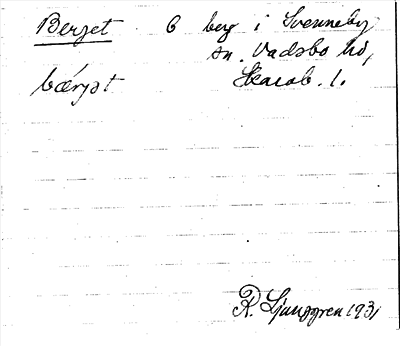 Berget 6 berg i Svenneby
sn. Vadsbo hd,
bærjət Skarab. l.
R. Ljunggren 1931